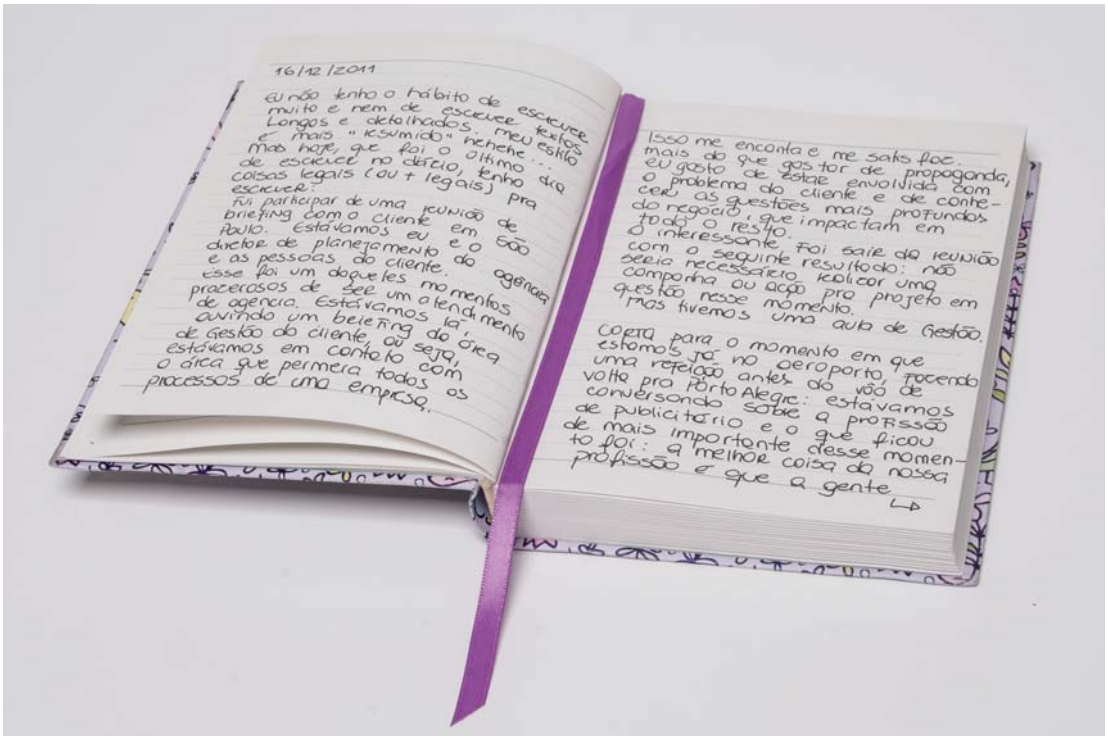 16/12/2011
Eu não tenho o hábito de escrever
muito e nem de escrever textos
longos e detalhados. Meu estilo
é mais "resumido" hehehe...
Mas hoje, que foi o último dia
de escrever no diário, tenho
coisas legais (ou + legais) pra
escrever!
Fui participar de uma reunião de
briefing com o cliente em São
Paulo. Estávamos eu e o
diretor de planejamento da agência
e as pessoas do cliente.
Esse foi um daqueles momentos
prazerosos de ser um atendimento
de agência. Estávamos lá,
ouvindo um briefing da área
de Gestão do cliente, ou seja,
estávamos em contato com
a área que permera todos os
processos de uma empresa.
Isso me encanta e me satisfaz.
mais do que gostar de propaganda,
eu gosto de estar envolvida com
o problema do cliente e de conhe-
cer as questões mais profundas
do negócio, que impactam em
todo o resto.
O interessante foi sair da reunião
com o seguinte resultado: não
seria necessário realizar uma
campanha ou ação pro projeto em
questão nesse momento.
Mas tivemos uma aula de Gestão.
Corta para o momento em que
estamos já no aeroporto, fazendo
uma refeição antes do vôo de
volta pra Porto Alegre: estávamos
conversando sobre a profissão
de publicitário e o que ficou
de mais importante desse momen-
to foi: a melhor coisa da nossa
profissão é que a gente